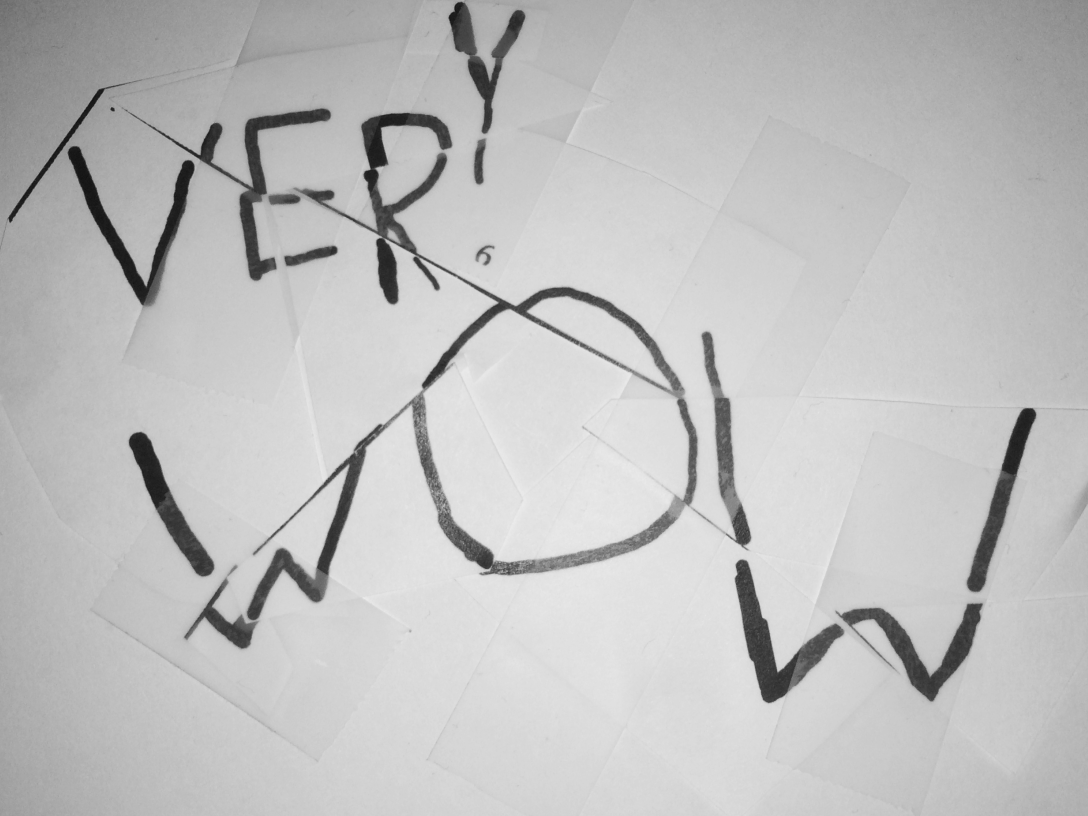 VERY
6
WOW